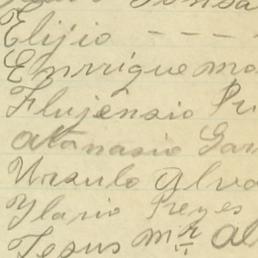 Elijio ----
Enrrique mo
Flujensio Pr
Atanasio Gar
Ursulo Alva
Ylario Reyes
Jesus Mª Al